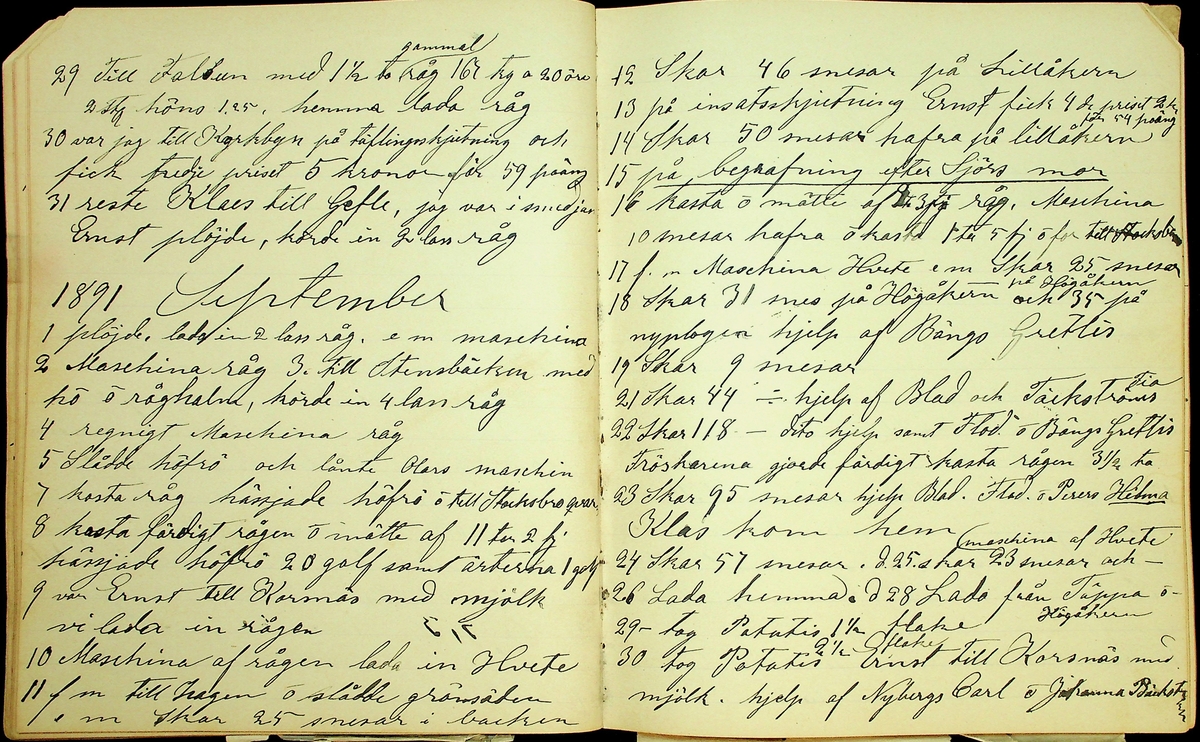 gammal
29 Till Falun med 1½ to råg 167 kg a 20 öre
2 st höns 1.25. hemma lada råg
30 var jag till Kyrkbyn på täflingsskjutning och
fick tredje priset 5 kronor för 59 poäng
31 reste Klaes till Gefle, jag var i smedjan
Ernst plöjde, körde in 2 lass råg
1891 September
1 plöjde, lada in 2 lass råg. e m maschina
2 Maschina råg 3. till Stensbäcken med
hö ö råghalm, körde in 4 lass råg
4 regnigt Maschina råg
5 Slådde höfrö och lånte Olars maschin
7 kasta råg hässjade höfrö ö till Stocksbro qvarn
8 kasta färdigt rågen ö mätte af 11 tur 2 fj
hässjade höfrö 20 golf samt ärterna 1 golf
9 var Ernst till Korsnäs med mjölk
vi lada in rågen
10 Maschina af rågen lada in Hvete
11 f m till hagen ö slådde grönsäden
e m Skar 25 snesar i backen
12 Skar 46 snesar på Lillåkern
13 på insatsskjutning Ernst fick 4 de priset 2 kr
för 54 poäng
14 Skar 50 snesar hafra på lillåkern
15 på begrafning efter Sjörs mor
16 kasta ö mätte af 3 fj råg, Maschina
10 snesar hafra ö kasta 1 tu 5 fj ö for till Stocksbro
17 f. m Maschina Hvete e m Skar 25 snesar
på Högåkern
18 Skar 31 snes på Högåkern och 35 på
nyplogen hjelp af Bångs Grettis
19 Skar 9 snesar
21 Skar 44 ÷ hjelp af Blad och Täckströms Fia
22 Skar 118 — dito hjelp samt Flod. ö Bångs Grettis
Tröskarena gjorde färdigt kasta rågen 3½ to
23 Skar 95 snesar hjelp Blad. Flod. ö Perers Hilma
Klas kom hem
maschina af Hvete
24 Skar 57 snesar. d. 25. skar 23 snesar och —
26 Lada hemma. d 28 Lada från Täppa ö
Högåkern
29 — tog Potatis 1½ flake
30 tog Potatis 2½ flake Ernst till Korsnäs med
mjölk. hjelp af Nybergs Carl ö Johanna